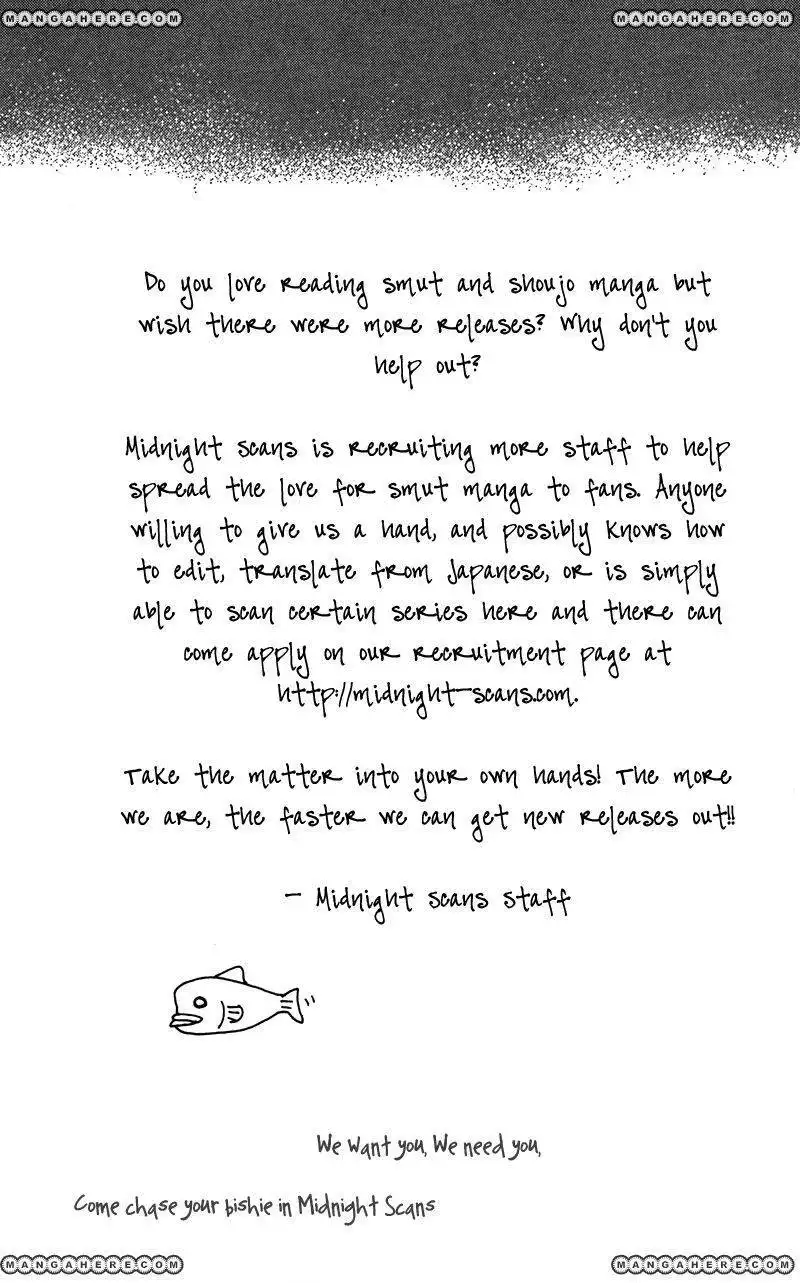 MANGAHERE.COM MANGAHERE.COM
Do you love reading smut and shoujo manga but
wish there were more releases? Why don't you
help out?
Midnight scans is recruiting more staff to help
spread the love for smut manga to fans. Anyone
willing to give us a hand, and possibly knows how
to edit, translate from Japanese, or is simply
able to scan certain series here and there can
come apply on our recruitment page at
http://midnight-scans.com.
Take the matter into your own hands! The more
we are, the faster we can get new releases out!!
- Midnight scans staff
We want you, We need you,
Come chase your bishie in Midnight Scans
MANGAHERE.COM MANGAHERE.COM